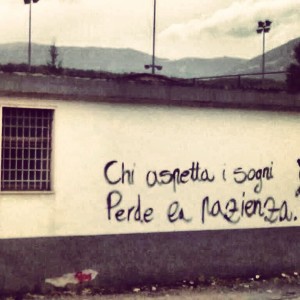 Chi aspetta i sogni
Perde la pazienza.